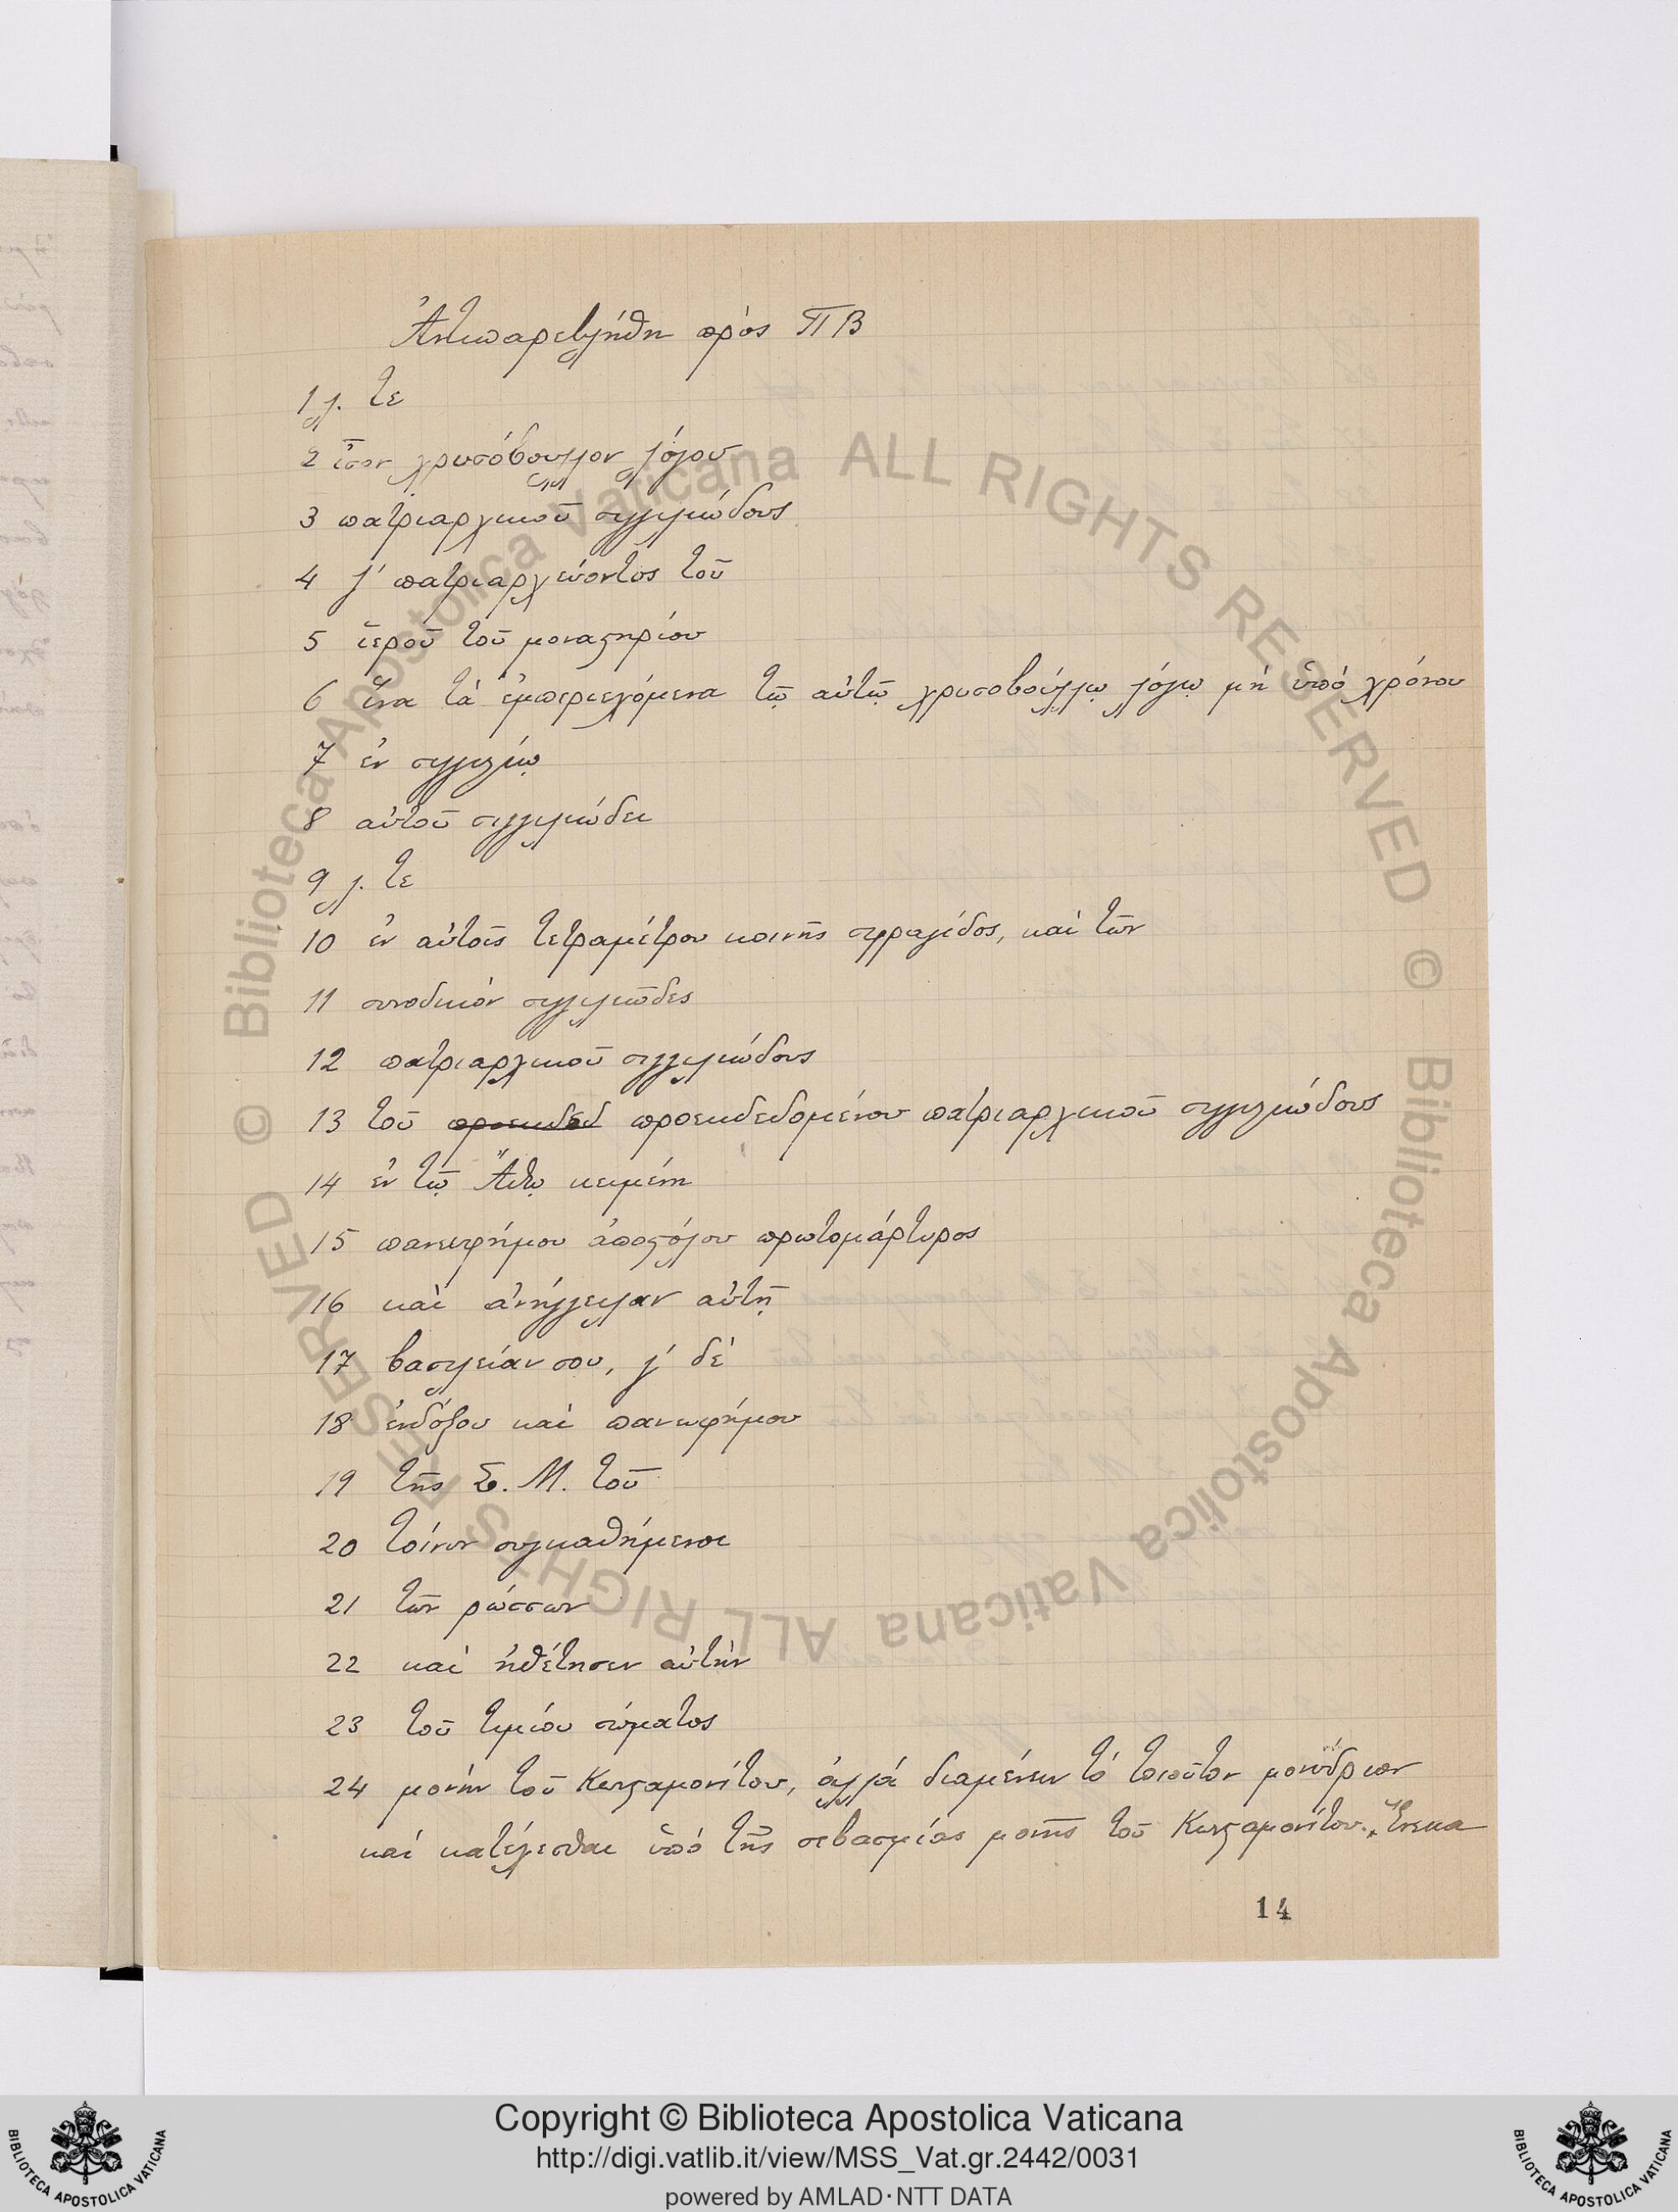 Ἀντιπαρεβλήθη πρὸς ΠΒ
1 λ. τε
2 ἴσον χρυσόβουλλον λόγου
3 πατριαρχικοῦ σιγγιλιώδους
4 λ' πατριαρχεύοντος τοῦ
5 ἱεροῦ τοῦ μοναστηρίου
6 ἵνα τὰ ἐμπεριεχόμενα τῷ αὐτῷ χρυσοβούλλῳ λόγῳ μὴ ὑπὸ χρόνου
7 ἐν σιγγιλίῳ
8 αὐτοῦ σιγγιλιώδει
9 λ. τε
10 ἐν αὐτοῖς τετραμέτρου κοινῆς σφραγίδος, καὶ τῶν
11 συνοδικὸν σιγγιλιῶδες
12 πατριαρχικοῦ σιγγιλιώδους
13 τοῦ προεκδεδ προεκδεδομένου πατριαρχικοῦ σιγγιλιώδους
14 ἐν τῷ Ἄθῳ κειμένη
15 πανευφήμου ἀποστόλου πρωτομάρτυρος
16 καὶ ἀνήγγειλαν αὐτῇ
17 βασιλείαν σου, λ' δὲ
18 ἐνδόξου καὶ πανευφήμου
19 τῆς Σ. Μ. τοῦ
20 τοίνυν συγκαθήμενοι
21 τῶν ρώσσων
22 καὶ ἠθέτησεν αὐτὴν
23 τοῦ τιμίου σώματος
24 μονὴν τοῦ Κωνσταμονίτου, ἀλλὰ διαμένειν τὸ τοιοῦτον μονύδριον
καὶ κατέχεσθαι ὑπὸ τῆς σεβασμίας μονῆς τοῦ Κωνσταμονίτου. Ἕνεκα
14
© Biblioteca Apostolica Vaticana ALL RIGHTS RESERVED © Biblioteca Apostolica Vaticana ALL RIGHTS RESERVED
Copyright © Biblioteca Apostolica Vaticana
http://digi.vatlib.it/view/MSS_Vat.gr.2442/0031
powered by AMLAD·NTT DATA
BIBLIOTECA APOSTOLICA VATICANA
BIBLIOTECA APOSTOLICA VATICANA